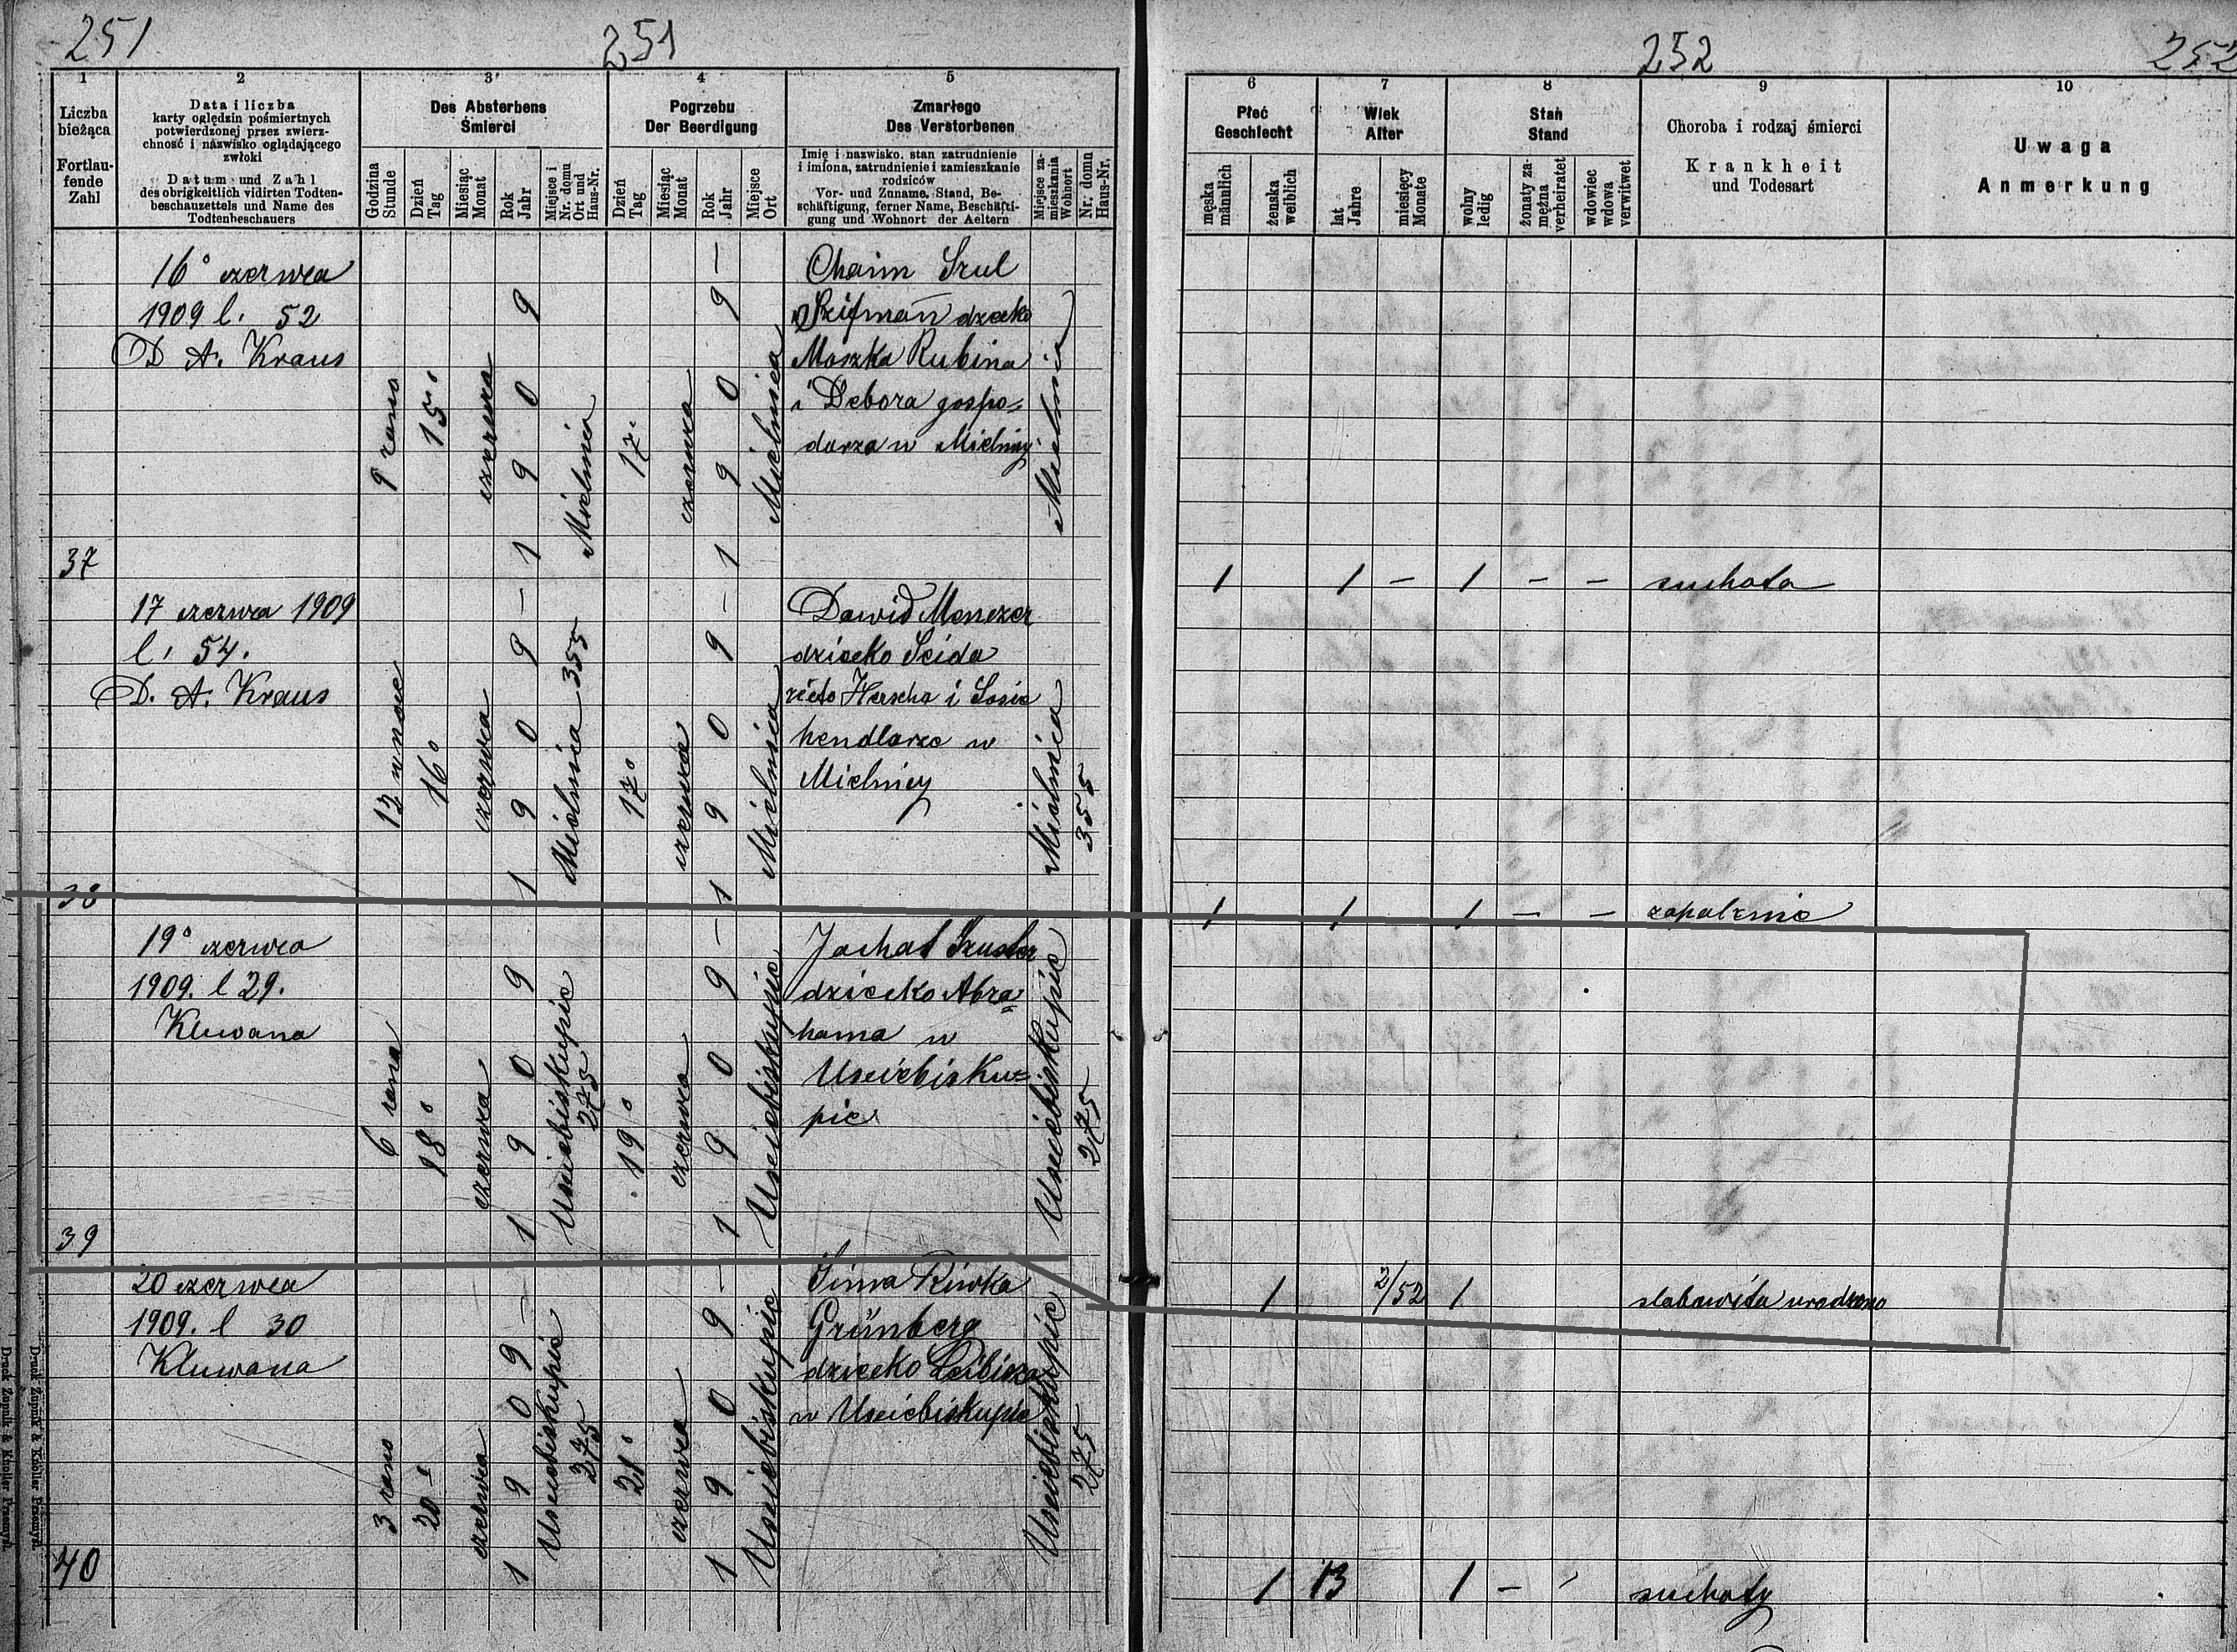 251
251
252
252
1
2
3
4
5
6
7
8
9
10
Liczba
bieżąca
Fortlau-
fende
Zahl
Data i liczba
karty oględzin pośmiertnych
potwierdzonej przez zwierz-
chność i nazwisko oglądającego
zwłoki
Datum und Zahl
des obrigkeitlich vidirten Todten-
beschauzettels und Name des
Todtenbeschauers
Des Absterbens
Śmierci
Godzina
Stunde
Dzień
Tag
Miesiąc
Monat
Rok
Jahr
Miejsce i
Nr. domu
Ort und
Haus-Nr.
Pogrzebu
Der Beerdigung
Dzień
Tag
Miesiąc
Monat
Rok
Jahr
Miejsce
Ort
Zmarłego
Des Verstorbenen
Imię i nazwisko, stan zatrudnienie
i imiona, zatrudnienie i zamieszkanie
rodziców
Vor- und Zuname, Stand, Be-
schäftigung, ferner Name, Beschäfti-
gung und Wohnort der Aeltern
Miejsce za-
mieszkania
Wohnort
Nr. domu
Haus-Nr.
Płeć
Geschlecht
męska
männlich
żeńska
weiblich
Wiek
Alter
lat
Jahre
miesięcy
Monate
Stan
Stand
wolny
ledig
żonaty za-
mężna
verheiratet
wdowiec
wdowa
verwitwet
Choroba i rodzaj śmierci
Krankheit
und Todesart
Uwaga
Anmerkung
37
16° czerwca
1909 l. 52
D A. Kraus
9 rano
15
czerwca
1909
Mielnica
17
czerwca
1909
Mielnica
Chaim Srul
dziecko
Moszka Rubina
i Debora gospo-
darza w Mielnicy
Mielnica
1 1 — 1 — —
suchota
38
17 czerwca 1909
l. 54.
D. A. Kraus
12 w nocie
16
czerwca
1909
Mielnica 355
17
czerwca
1909
Mielnica
Dawid
dziecko Seida
Herscha i Sosie
hendlarze w
Mielnicy
Mielnica
355
1 1 1 — —
zapalenie
39
19° czerwca
1909. l 29.
Kluwana
6 rana
18
czerwca
1909
Usciebiskupie
275
19
czerwca
1909
Usciebiskupie
Jachat Szuster
dziecko Abra=
hama w
Usciebisku=
pie
Usciebiskupie
275
1 2/52 1
urodzeno
40
20 czerwca
1909. l 30
Kluwana
3 rano
20
czerwca
1909
Usciebiskupie
275
21
czerwca
1909
Usciebiskupie
Sima Riwka
Grünberg
dziecko Leibisza
w Usciebiskupie
Usciebiskupie
275
1 13 1 —
suchoty
Druck Żupnik & Knoller Przemyśl.
Druck Żupnik & Knoller Przemyśl.